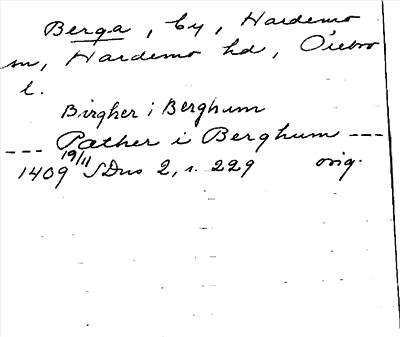 Berga, by, Hardemo
sn, Hardemo hd, Örebro
l.
Birgher i Berghum
--- Pæther i Berghum ---
1409 19/11 SDns 2, s. 229 orig.